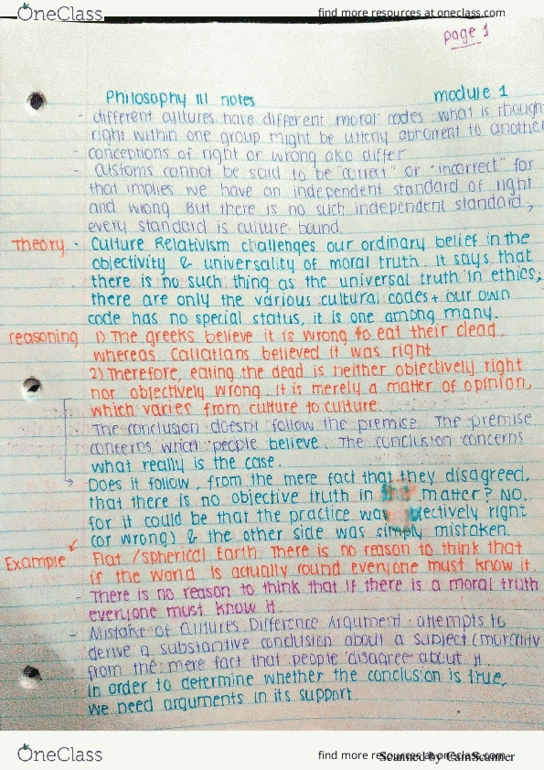 OneClass find more resources at oneclass.com
page 1
Philosophy 111 notes module 1
- different cultures have different moral codes what is though
right within one group might be utterly abhorrent to another
- conceptions of right or wrong also differ
- customs cannot be said to be "correct" or "incorrect" for
that implies we have an independent standard of right
and wrong But there is no such independent standard,
every standard is culture-bound.
Theory - Culture Relativism challenges our ordinary belief in the
objectivity & universality of moral truth. It says that
there is no such thing as the universal truth in ethics;
there are only the various cultural codes + our own
code has no special status, it is one among many.
reasoning 1) The greeks believe it is wrong to eat their dead
whereas Callatians believed it was right.
2) Therefore, eating the dead is neither objectively right
nor objectively wrong. It is merely a matter of opinion,
which varies from culture to culture.
- The conclusion doesnt follow the premise. The premise
concerns what people believe. The conclusion concerns
what really is the case.
Does it follow, from the mere fact that they disagreed,
that there is no objective truth in the matter? NO.
for it could be that the practice was right
(or wrong) & the other side was simply mistaken.
Example - Flat / spherical Earth. There is no reason to think that
if the world is actually round everyone must know it.
- There is no reason to think that if there is a moral truth
everyone must know it.
- Mistake of Cultures Difference Argument: attempts to
derive a substantive conclusion about a subject (morality
from the mere fact that people disagree about it.
- In order to determine whether the conclusion is true,
we need arguments in its support.
OneClass find more resources at oneclass.com
Scanned by CamScanner